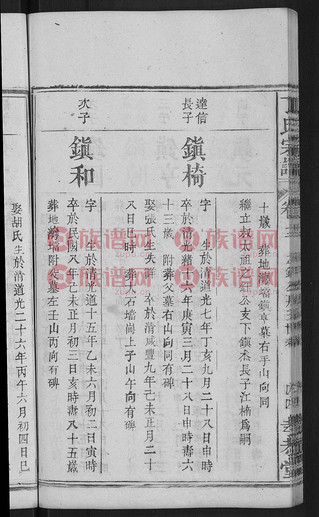 十歲 葬地 鎮 墓右手山向同
繼立叔太祖 公支下鎮杰長子江楠爲嗣
達信
長子
鎮椅
字 生於清道光七年丁亥九月二十八日申時
卒於清光緒十六年庚寅三月二十八日申時壽六
十三歲 附葬父墓右山向同
娶張氏生失詳 卒於清咸豐九年己未正月二十
八日巳時 葬 石塘崗上子山午向有碑
次子
鎮和
字 生於清道光十五年乙未六月初二日寅時
卒於民國八年己未正月初三日亥時壽八十五歲
葬地 附父墓左壬山丙向有碑
娶胡氏生於清道光二十六年丙午六月初四日巳
氏宗譜